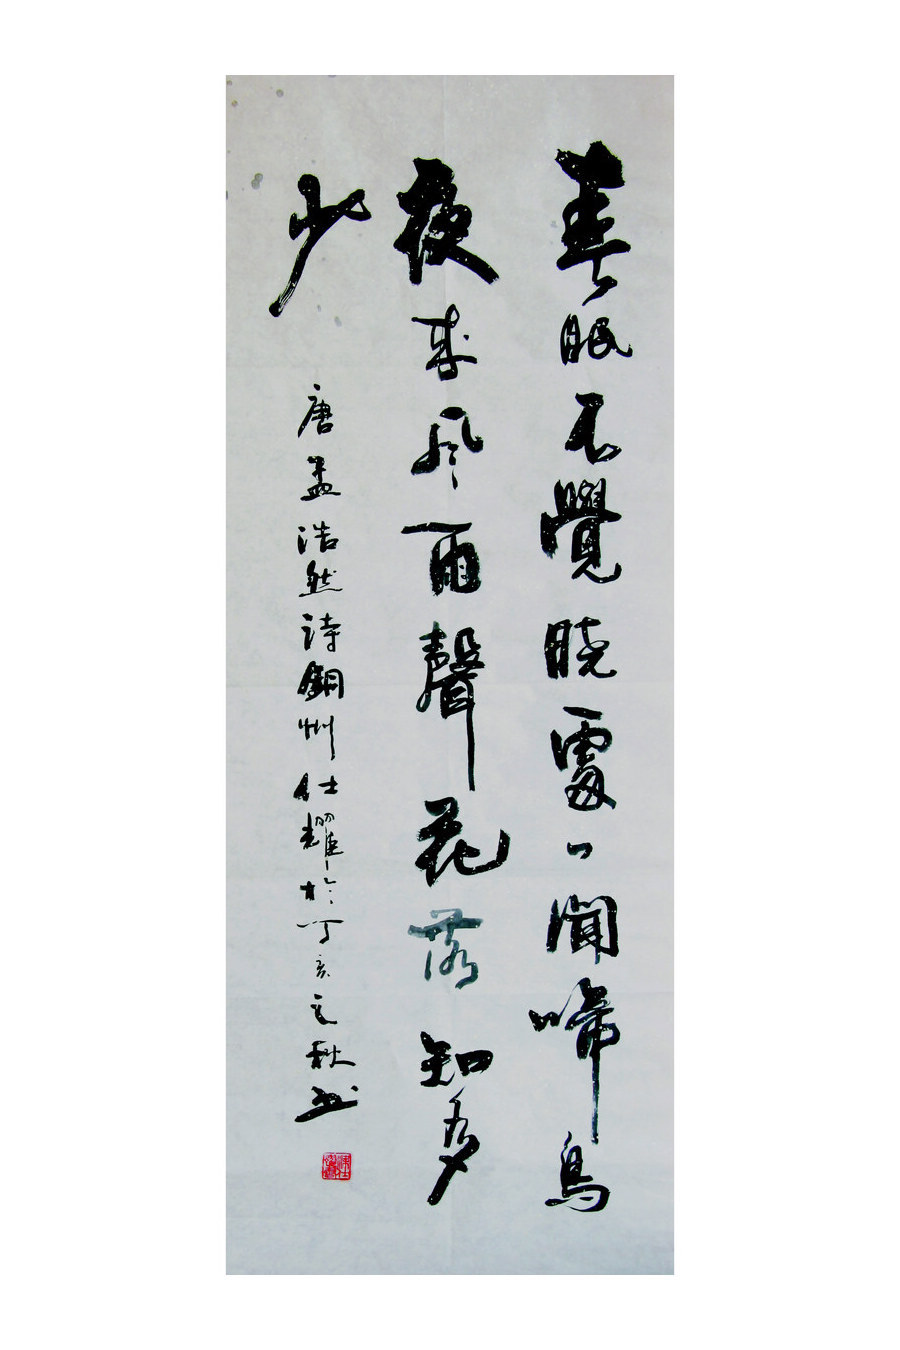 春眠不覺曉處々聞啼鳥
夜來風雨聲花落知多
少
唐孟浩然诗銅州仕耀於丁亥之秋书